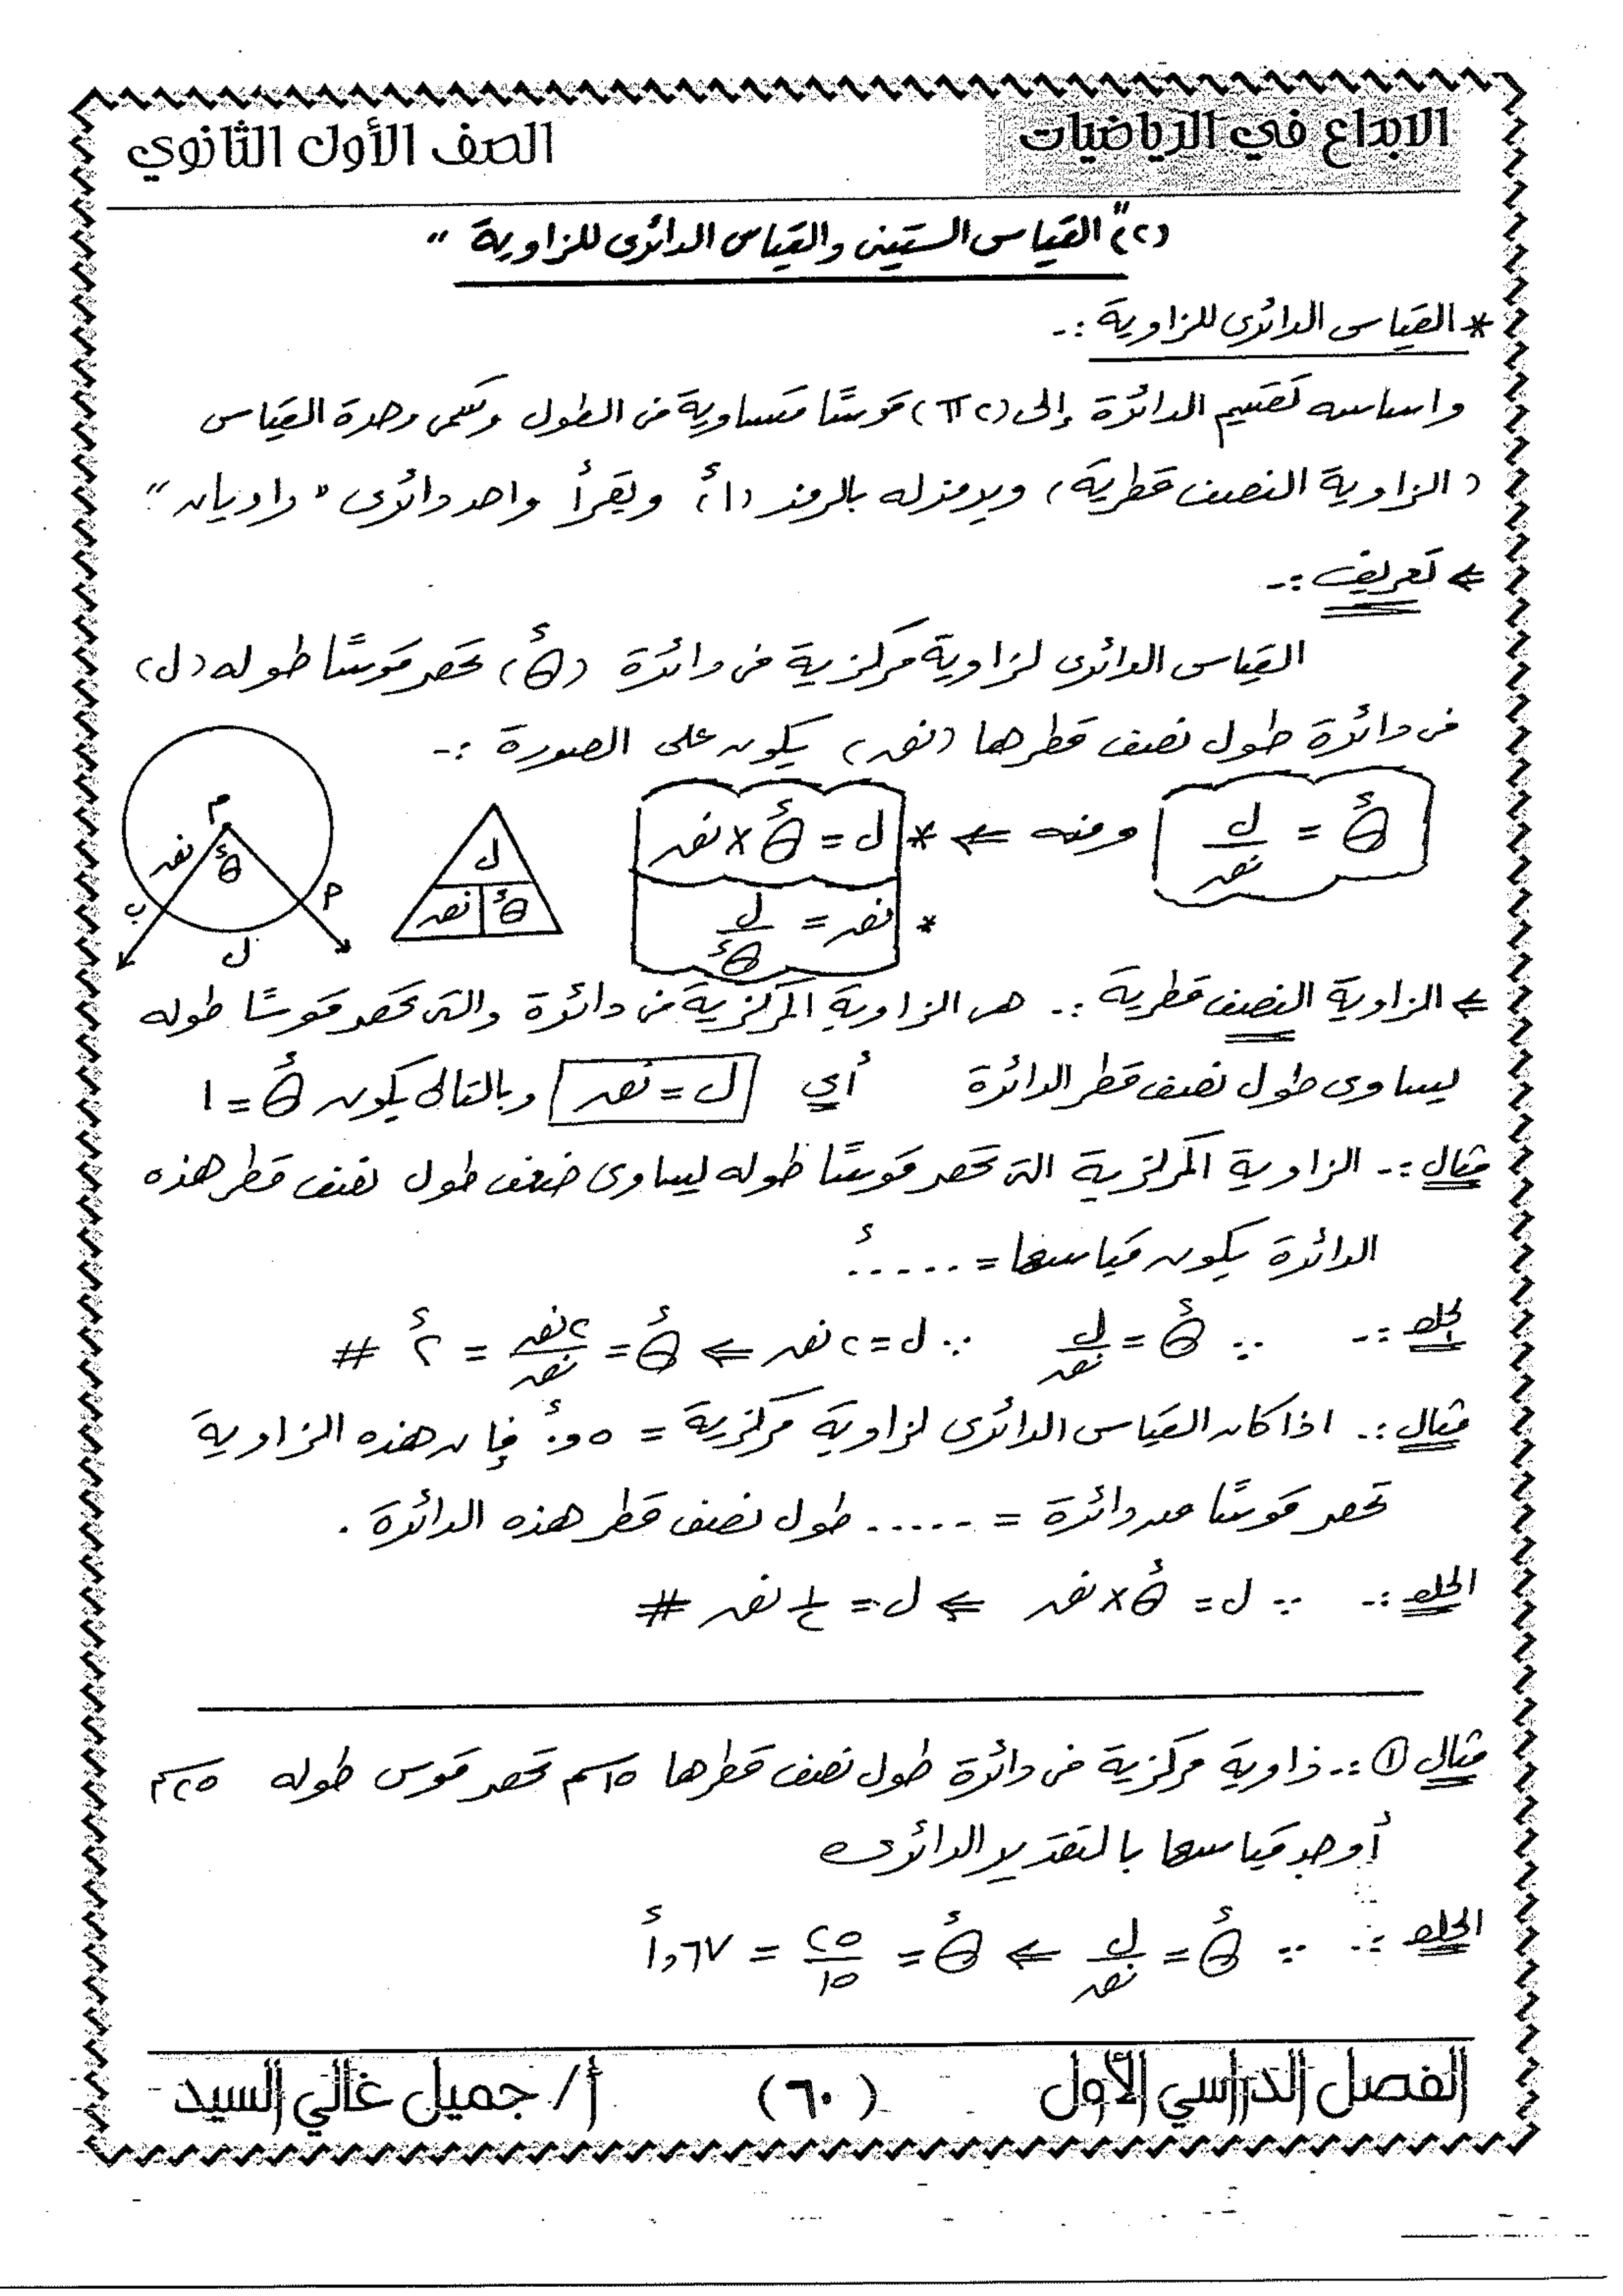 الابداع في الرياضيات
الصف الأول الثانوي
(٢) " القياس الستينى والقياس الدائرى للزاوية "
* القياس الدائرى للزاوية :-
واساسه تقسيم الدائرة إلى (٢ π) قوسًا متساوية فى الطول وتسمى وحدة القياس
( الزاوية النصف قطرية ) ويرمز له بالرمز (١ء) ويقرأ واحد دائرى " راديان "
⇐ تعريف :-
القياس الدائرى لزاوية مركزية فى دائرة (θء) تحصر قوسًا طوله (ل)
فى دائرة طول نصف قطرها (نق) يكون على الصورة :-
θء = ل/نق ومنه ⇐ * ل = θء × نق
* نق = ل/θء
ل
θء نق
م
نق θء
ب
أ
ل
⇐ الزاوية النصف قطرية :- هى الزاوية المركزية فى دائرة والتى تحصر قوسًا طوله
يساوى طول نصف قطر الدائرة أي ل = نق وبالتالى يكون θء = ١
مثال :- الزاوية المركزية التى تحصر قوسًا طوله يساوى ضعف طول نصف قطر هذه
الدائرة يكون قياسها = ..... ء
الحل :- ∵ θء = ل/نق ∵ ل = ٢ نق ⇐ θء = ٢نق/نق = ٢ء #
مثال :- اذا كان القياس الدائرى لزاوية مركزية = ٥و٠ء فإن هذه الزاوية
تحصر قوسًا من دائرة = ..... طول نصف قطر هذه الدائرة .
الحل :- ∵ ل = θء × نق ⇐ ل = ١/٢ نق #
مثال ① :- زاوية مركزية فى دائرة طول نصف قطرها ١٥سم تحصر قوس طوله ٢٥سم
أوجد قياسها بالتقدير الدائرى
الحل :- ∵ θء = ل/نق ⇐ θء = ٢٥/١٥ = ٦٧و١ء
الفصل الدراسي الأول
(٦٠)
أ/ جميل غالي السيد